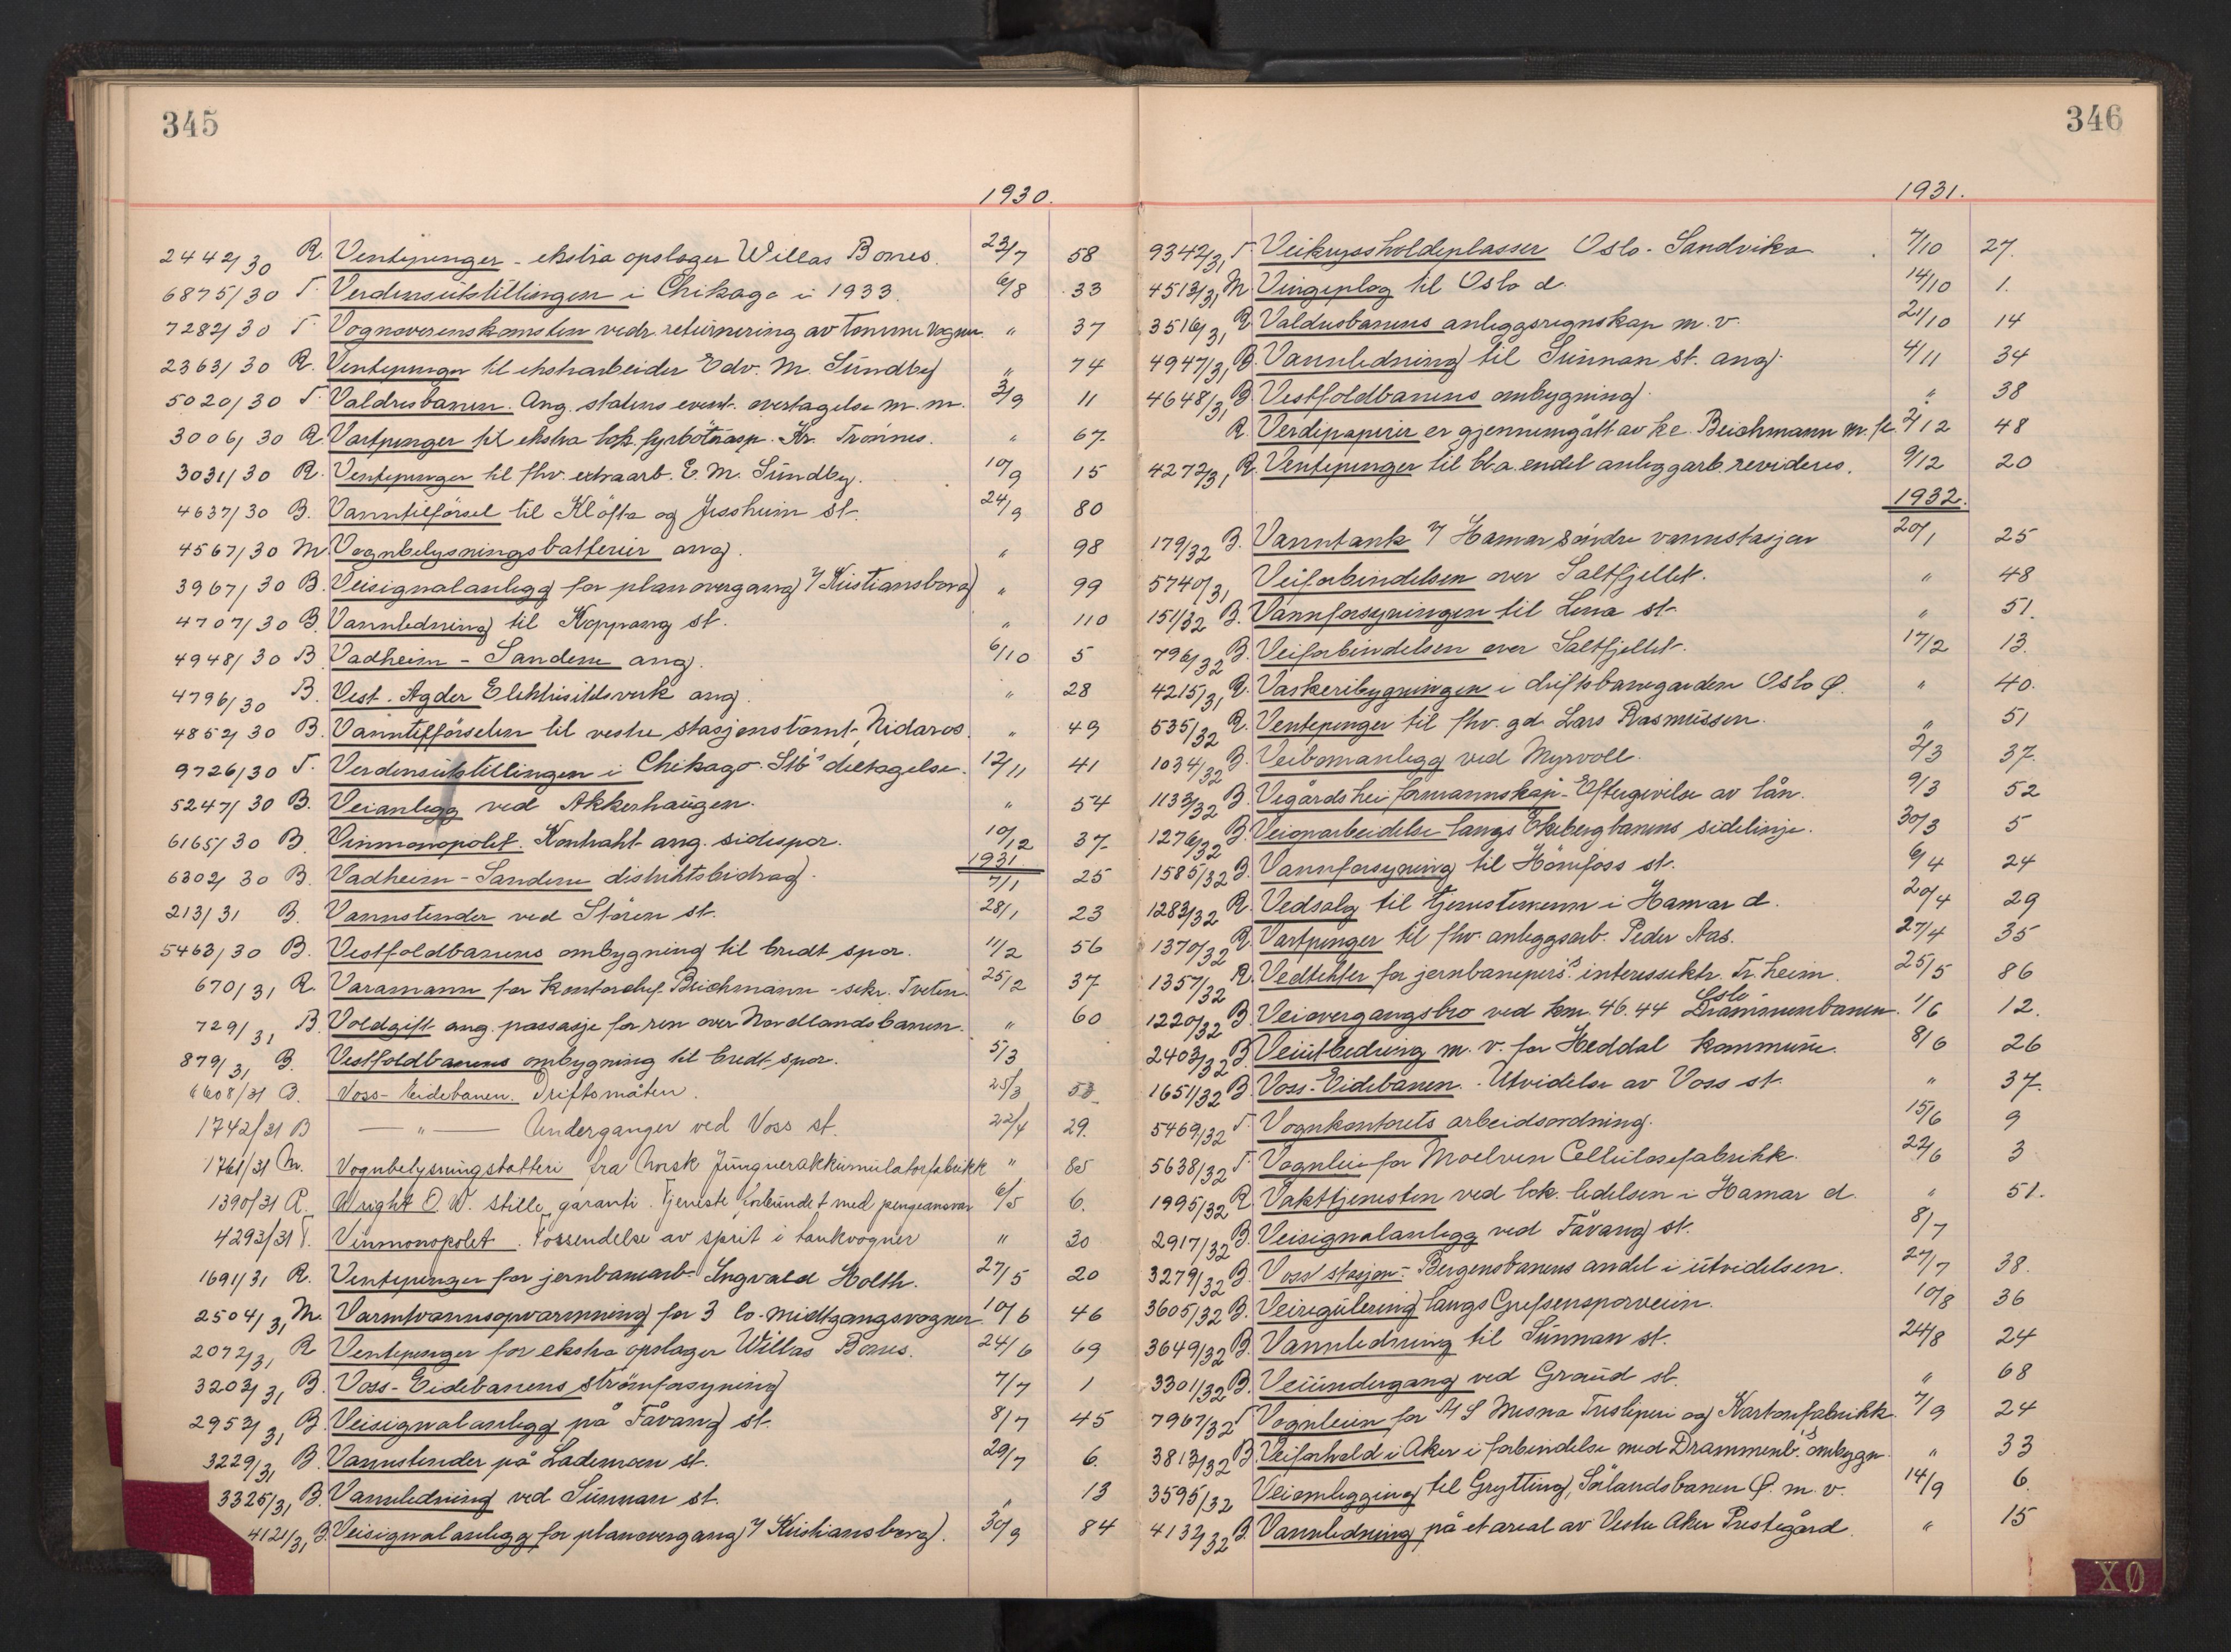 345
1930.
2442/30 R. Ventepenger - ekstra opslager Willas Bones. 23/7 58
6875/30 T. Verdensutstillingen i Chikago i 1933. 6/8 33
7282/30 T. Vognoverenskomsten vedr. returnering av tomme vogner. " 37
2363/30 R. Ventepenger til ekstraarbeider Edv. M. Sundby " 74
5020/30 T. Valdresbanen. Ang. statens event. overtagelse m.m. 3/9 11
3006/30 R. Vartpenger til ekstra lok. fyrbøterasp. Kr. Trønnes. " 67
3031/30 R. Ventepenger til fhv. extraarb. E. M. Sundby. 10/9 15
4637/30 B. Vanntilførsel til Kløfta og Jessheim st. 24/9 80
4567/30 M. Vognbelysningsbatterier ang. " 98
3967/30 B. Veisignalanlegg for planovergang v/ Kristiansborg " 99
4707/30 B. Vannledning til Koppang st. " 110
4948/30 B. Vadheim - Sandene ang. 6/10 5
4796/30 B. Vest-Agder Elektrisitetsverk ang. " 28
4852/30 B. Vanntilførselen til vestre stasjonstomt, Nidaros. " 49
9726/30 T. Verdensutstillingen i Chikago. Stb's deltagelse. 12/11 41
5247/30 B. Veianlegg ved Akkerhaugen. " 54
6165/30 B. Vinmonopolet. Kontrakt ang. sidespor. 10/12 37
1931.
6302/30 B. Vadheim - Sandene distriktsbidrag. 7/1 25
213/31 B. Vannstender ved Støren st. 28/1 23
5463/30 B. Vestfoldbanens ombygning til bredt spor. 11/2 56
670/31 R. Varamann for kontorchef Beichmann - sekr. Tveten. 25/2 37
729/31 B. Voldgift ang. passasje for ren over Nordlandsbanen. " 60
879/31 B. Vestfoldbanens ombygning til bredt spor. 5/3
608/31 B. Voss-Eidebanen. Driftsmåten. 25/3 53
1742/31 B — " — Underganger ved Voss st. 22/4 29.
1761/31 M. Vognbelysningsbatteri fra Norsk Jungnerakkumulatorfabrikk " 85
1390/31 R. Wright O. W. stille garanti. Tjeneste forbundet med pengeansvar 6/5 6.
4293/31 T. Vinmonopolet. Forsendelse av sprit i tankvogner " 30
1691/31 R. Ventepenger for jernbanearb. Ingvald Holth. 27/5 20
2504/31 M. Varmtvannsopvarmning for 3 Co-midtgangsvogner 10/6 46
2072/31 R Ventepenger for ekstra opslager Willas Bones. 24/6 69
3203/31 B. Voss-Eidebanens strømforsyning 7/7 1
2953/31 B. Veisignalanlegg på Fåvang st. 8/7 45
3229/31 B. Vannstender på Lademoen st. 29/7 6.
3325/31 B. Vannledning ved Sunnan st. " 13
4121/31 B. Veisignalanlegg for planovergang v/ Kristiansborg. 30/9 84
346
1931.
9342/31 T. Veikryssholdeplasser Oslo - Sandvika. 7/10 27.
4513/31 M Vingeplog til Oslo d. 14/10 1.
3516/31 R. Valdresbanens anleggsregnskap m. v. 21/10 14
4947/31 B. Vannledning til Sunnan st. ang. 4/11 34
4648/31 B Vestfoldbanens ombygning. " 38
R. Verdipapirer er gjennemgått av k.c. Beichmann m. fl. 2/12 48
4272/31 R. Ventepenger til bl.a. endel anleggarb. revideres. 9/12 20
1932.
179/32 B. Vanntank v/ Hamar søndre vannstasjon 20/1 25
5740/31 Veiforbindelsen over Saltfjellet. " 48
151/32 B. Vannforsyningen til Lena st. " 51.
796/32 B. Veiforbindelsen over Saltfjellet. 17/2 13.
4215/31 R. Vaskeribygningen i driftsbanegården Oslo Ø. " 40.
535/32 R. Ventepenger til fhv. gd. Lars Rasmussen. " 51
1034/32 B. Veibomanlegg ved Myrvoll. 2/3 37.
1133/32 B. Vegårdshei formannskap - Eftergivelse av lån. 9/3 52
1276/32 B. Veioparbeidelse langs Ekebergbanens sidelinje. 30/3 5
1585/32 B. Vannforsyning til Hønefoss st. 6/4 24
1283/32 R. Vedsalg til tjenestemenn i Hamar d. 20/4 29
1370/32 R. Vartpenger til fhv. anleggsarb. Peder Aas. 27/4 35
1357/32 R. Vedtekter for jernbanepers's interessektr. Tr.heim. 25/5 86
1220/32 B. Veiovergangsbro ved km. 46.44 Oslo Drammenbanen. 1/6 12.
2403/32 B. Veiutbedring m. v. for Heddal kommune. 8/6 26
1651/32 B. Voss-Eidebanen. Utvidelse av Voss st. " 37.
5469/32 T. Vognkontorets arbeidsordning. 15/6 9
5638/32 T. Vognleie for Moelven Cellulosefabrikk. 22/6 3
1995/32 R. Vakttjenesten ved lok. ledelsen i Hamar d. " 51.
2917/32 B. Veisignalanlegg ved Fåvang st. 8/7
3279/32 B. Voss stasjon: Bergensbanens andel i utvidelsen. 27/7 38.
3605/32 B. Veiregulering langs Grefsensporveien. 10/8 36
3649/32 B. Vannledning til Sunnan st. 24/8 24
3301/32 B. Veiundergang ved Graud st. " 68
7967/32 T Vognleien for A/S Mesna Tresliperi og Kartonfabrikk. 7/9 24
3813/32 B. Veiforhold i Aker i forbindelse med Drammenb.'s ombygn. " 33
3595/32 Veiomlegging til Grytting, Sørlandsbanen Ø. m. v. 14/9 6.
4132/32 B. Vannledning på et areal av Vestre Aker Prestegård. " 15
XØ